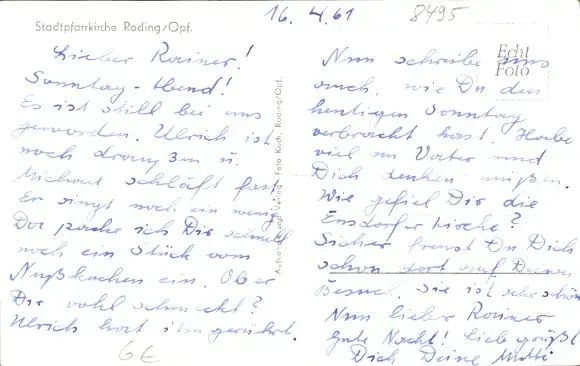 Stadtpfarrkirche Roding/Opf.
16. 4. 61
8495
Echt
Foto
Lieber Rainer!
Sonntag-Abend!
Es ist still bei uns
geworden. Ulrich ist
noch draußen u.
Michael schläft fast
Er singt noch ein wenig
Da packe ich Dir schnell
noch ein Stück vom
Nußkuchen ein. Ob er
Dir wohl schmeckt?
Ulrich hat ihn gerührt.
6€
Aufnahme und Verlag Foto Koch, Roding/Opf.
Nun schreibe uns
auch, wie Du den
heutigen Sonntag
verbracht hast. Habe
viel an Vater und
Dich denken müßen.
Wie gefiel Dir die
Ensdorfer Kirche?
Sicher freust Du Dich
schon dort auf Deinen
Besuch. Sie ist sehr schön
Nun lieber Rainer
gute Nacht! Lieb grüßt
Dich Deine Mutti